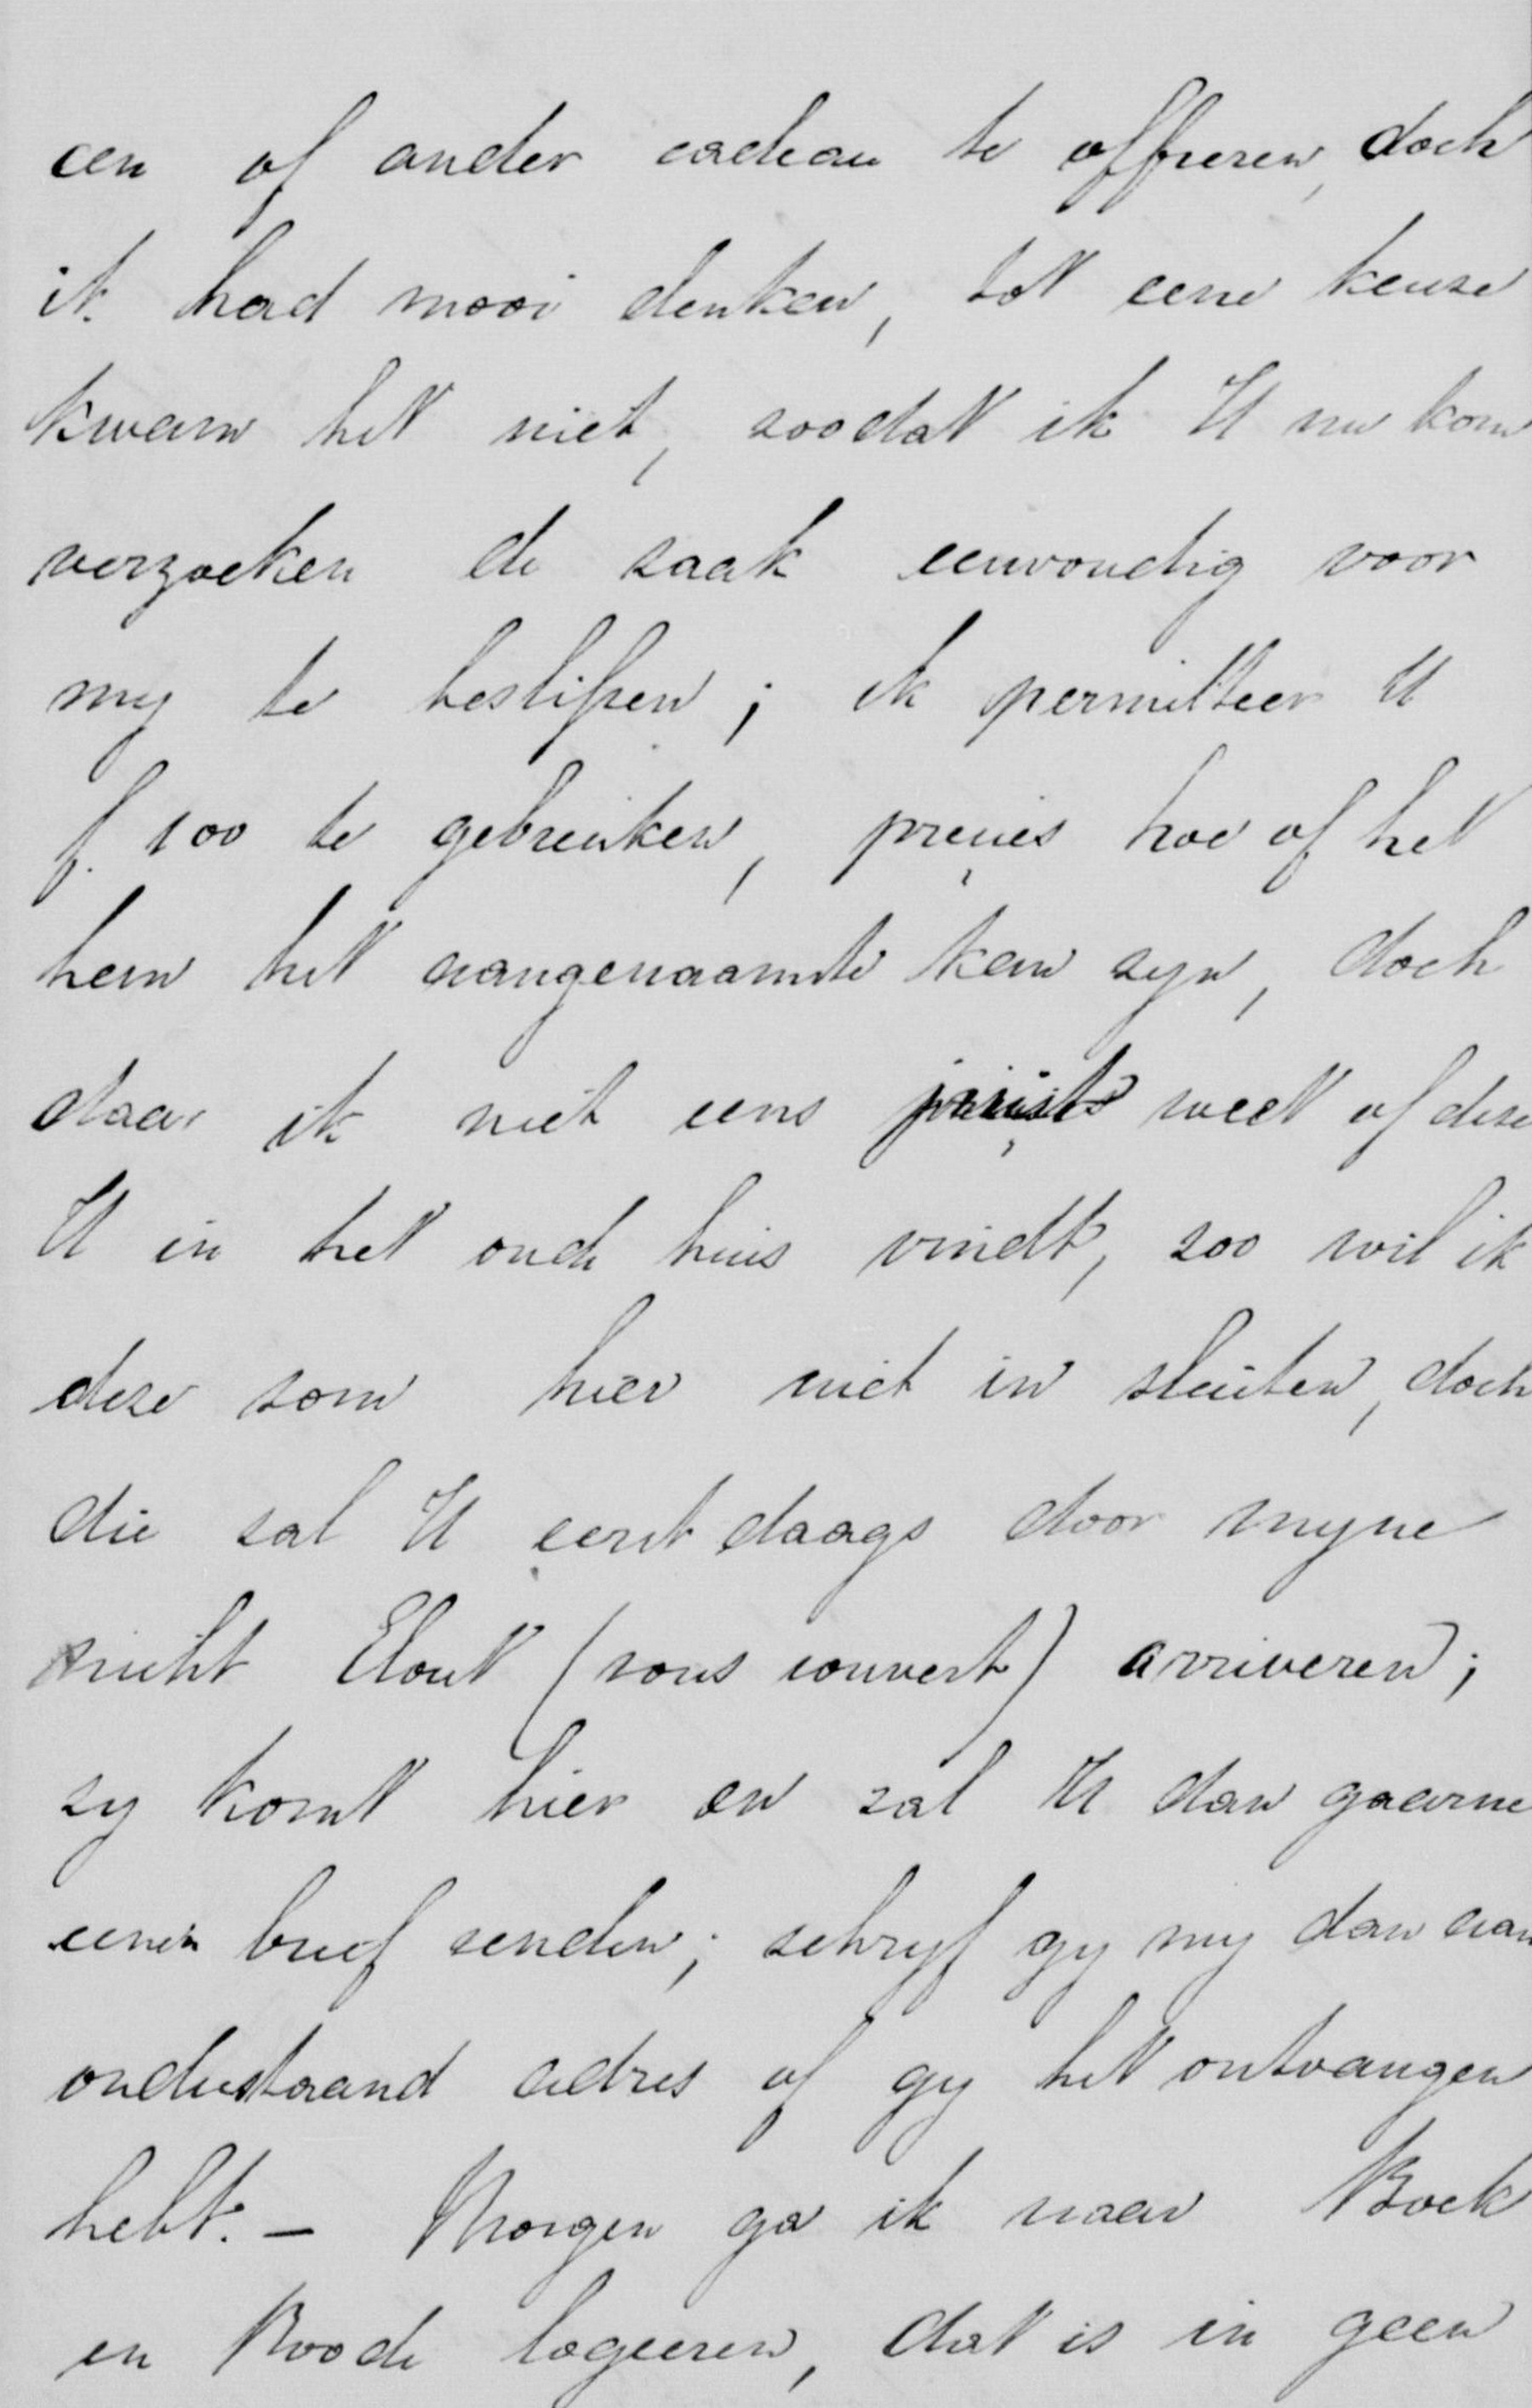 een of ander cadeau te offreren, doch
ik had mooi denken, tot eene keuze
kwam het niet, zoodat ik U nu kom
verzoeken de zaak eenvoudig voor
my te beslissen; ik permitteer U
f. 100 te gebruiken, precies hoe of het
hem het aangenaamste kan zyn, doch
daar ik niet eens juist weet of deze
U in het oude huis vindt, zoo wil ik
deze som hier niet in sluiten, doch
die zal U eerstdaags door myne
nicht Elout (sous couvert) arriveren;
zy komt hier en zal U dan gaarne
eenen brief zenden; schryf gy my dan aan
onderstaand adres of gy het ontvangen
hebt. — Morgen ga ik naar Boek
en Roode logeeren, dat is in geen